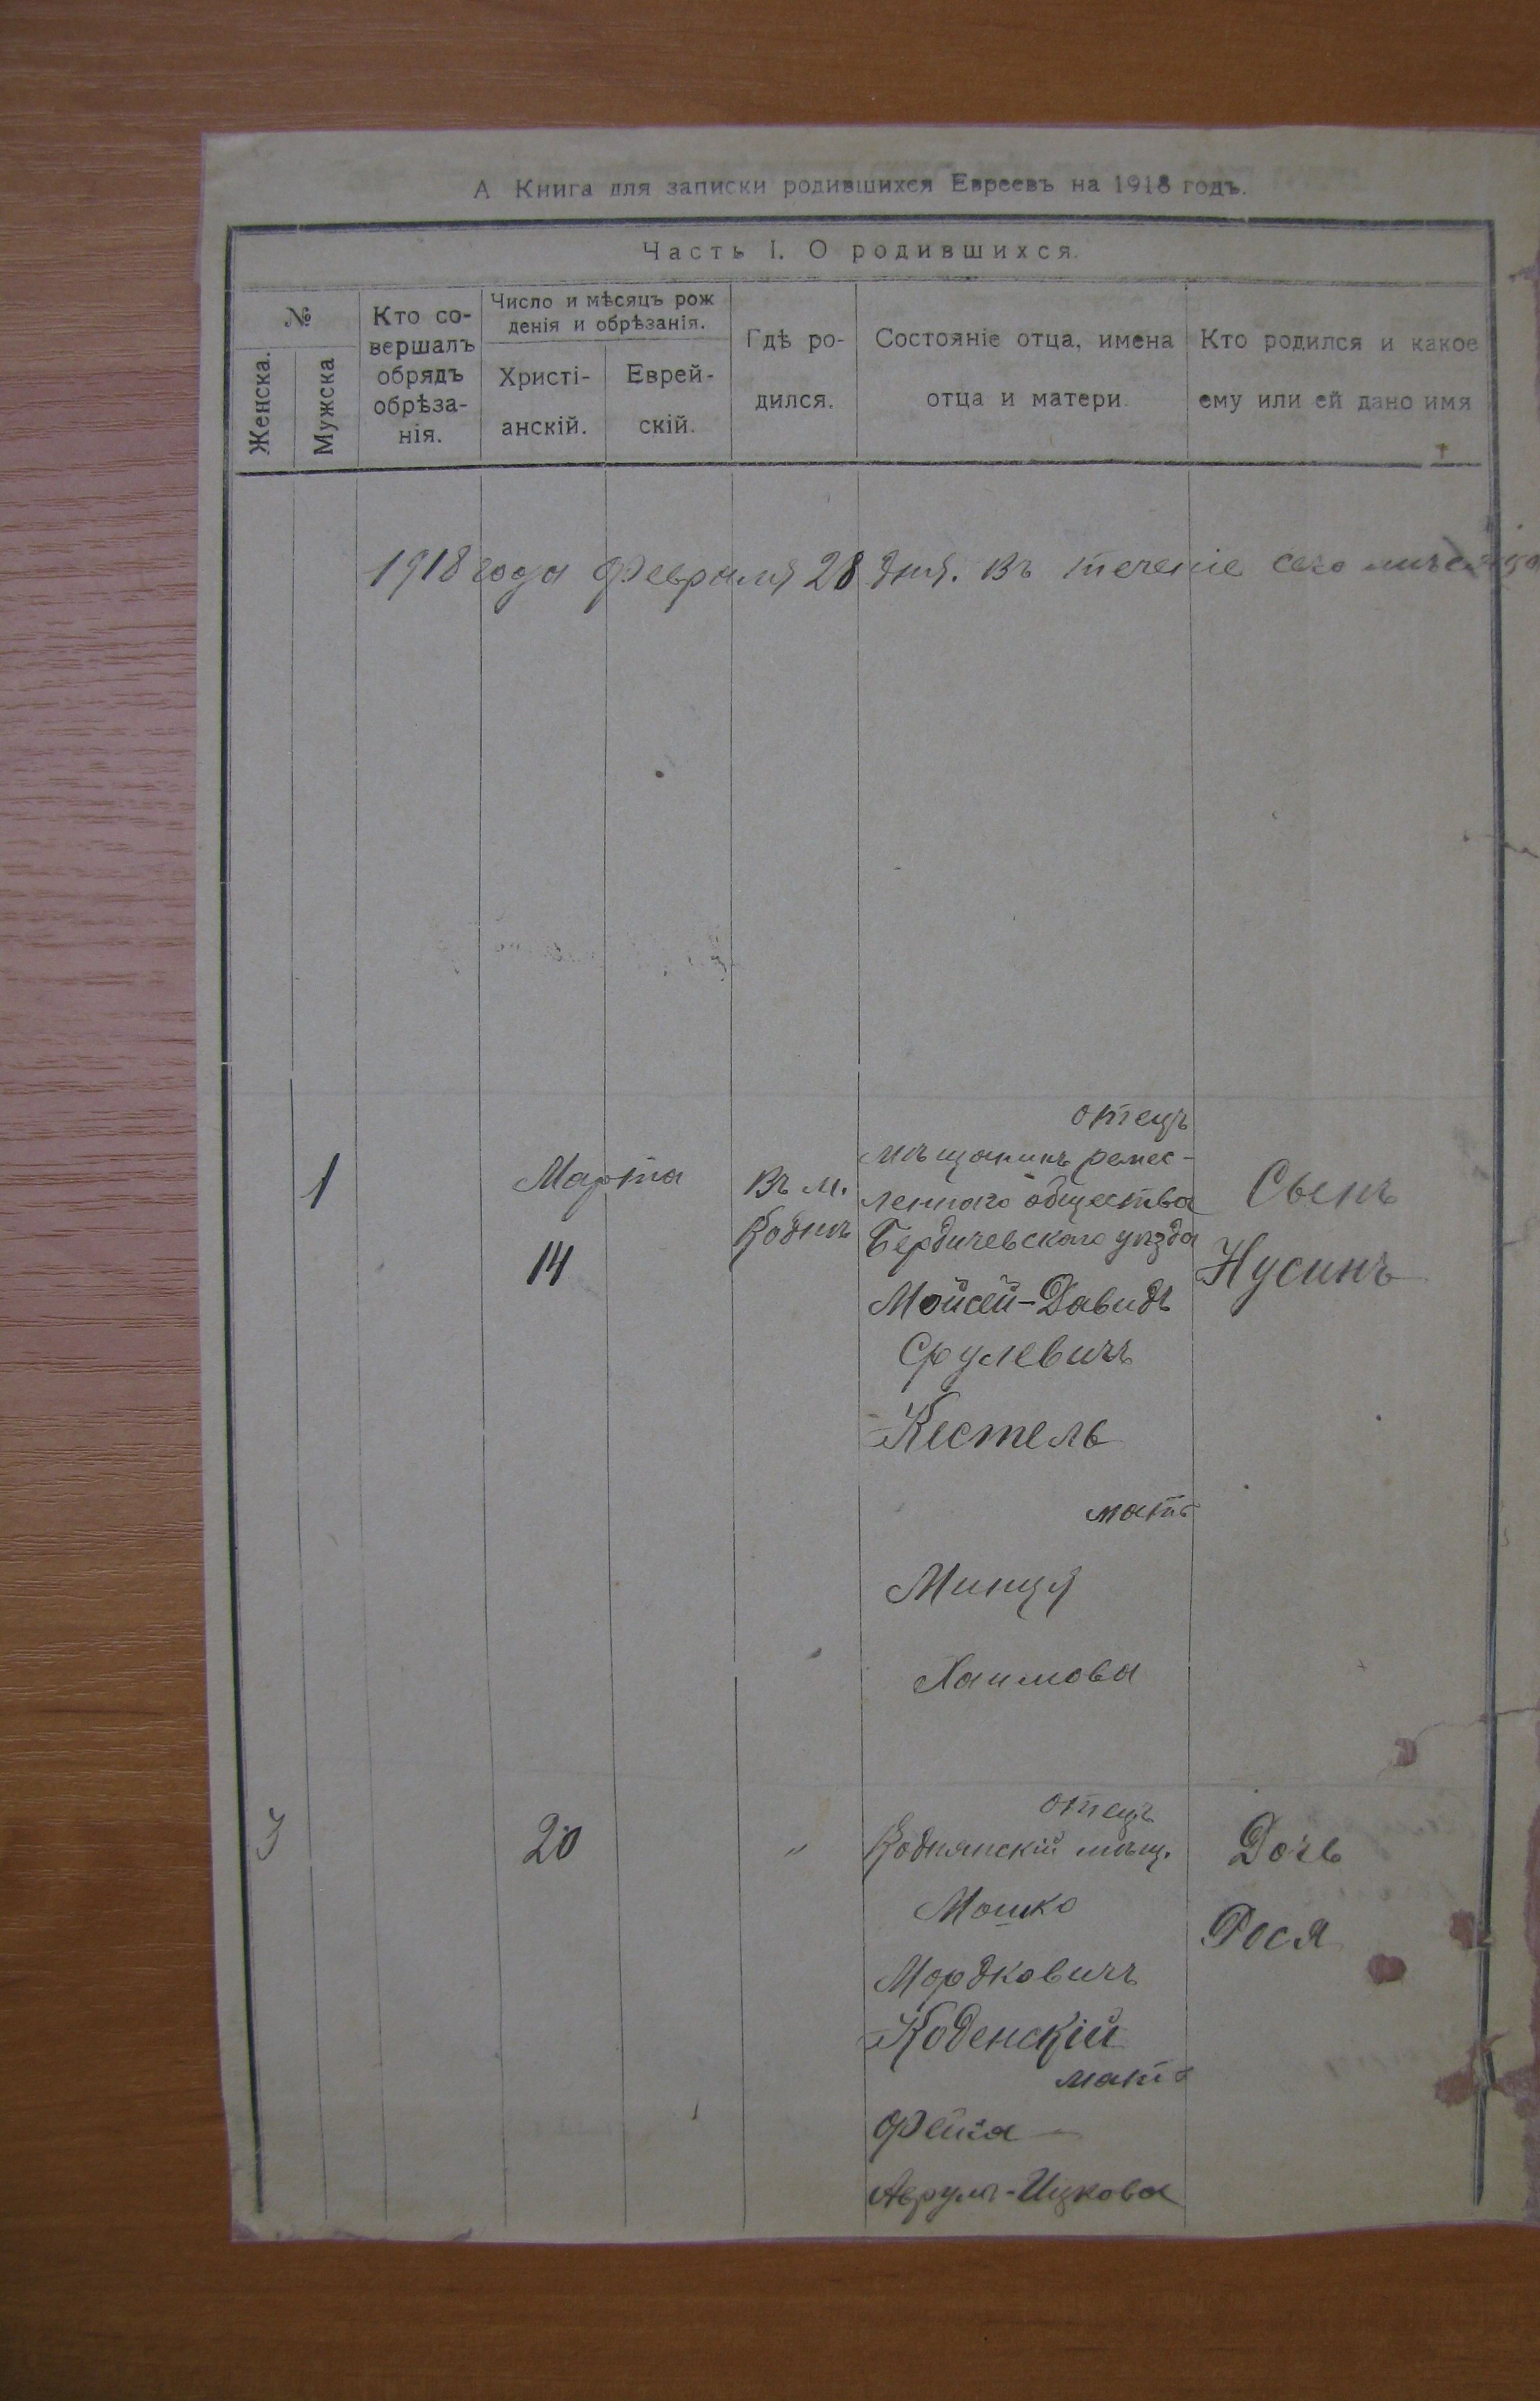 А Книга для записки родившихся Евреевъ на 1918 годъ.
Часть I. О родившихся.
№
Женска.
Мужска
Кто со-
вершалъ
обрядъ
обрѣза-
нія.
Число и мѣсяцъ рож
денія и обрѣзанія.
Христі-
анскій.
Еврей-
скій.
Гдѣ ро-
дился.
Состояніе отца, имена
отца и матери.
Кто родился и какое
ему или ей дано имя
1918 года Февраля 28 дня. Въ теченіе сего
1
Марта
14
Въ м.
Коднѣ
отецъ
мѣщанинъ ремес-
леннаго общества
Бердичевскаго уѣзда
Мойсей-Давидъ
Срулевичъ
Кестель
мать
Минця
Хаимова
Сынъ
Нусинъ
3
20
"
отецъ
Коднянскій мѣщ.
Мошко
Мордковичъ
Коденскій
мать
Фейга
Аврумъ-Ицкова
Дочь
Рося